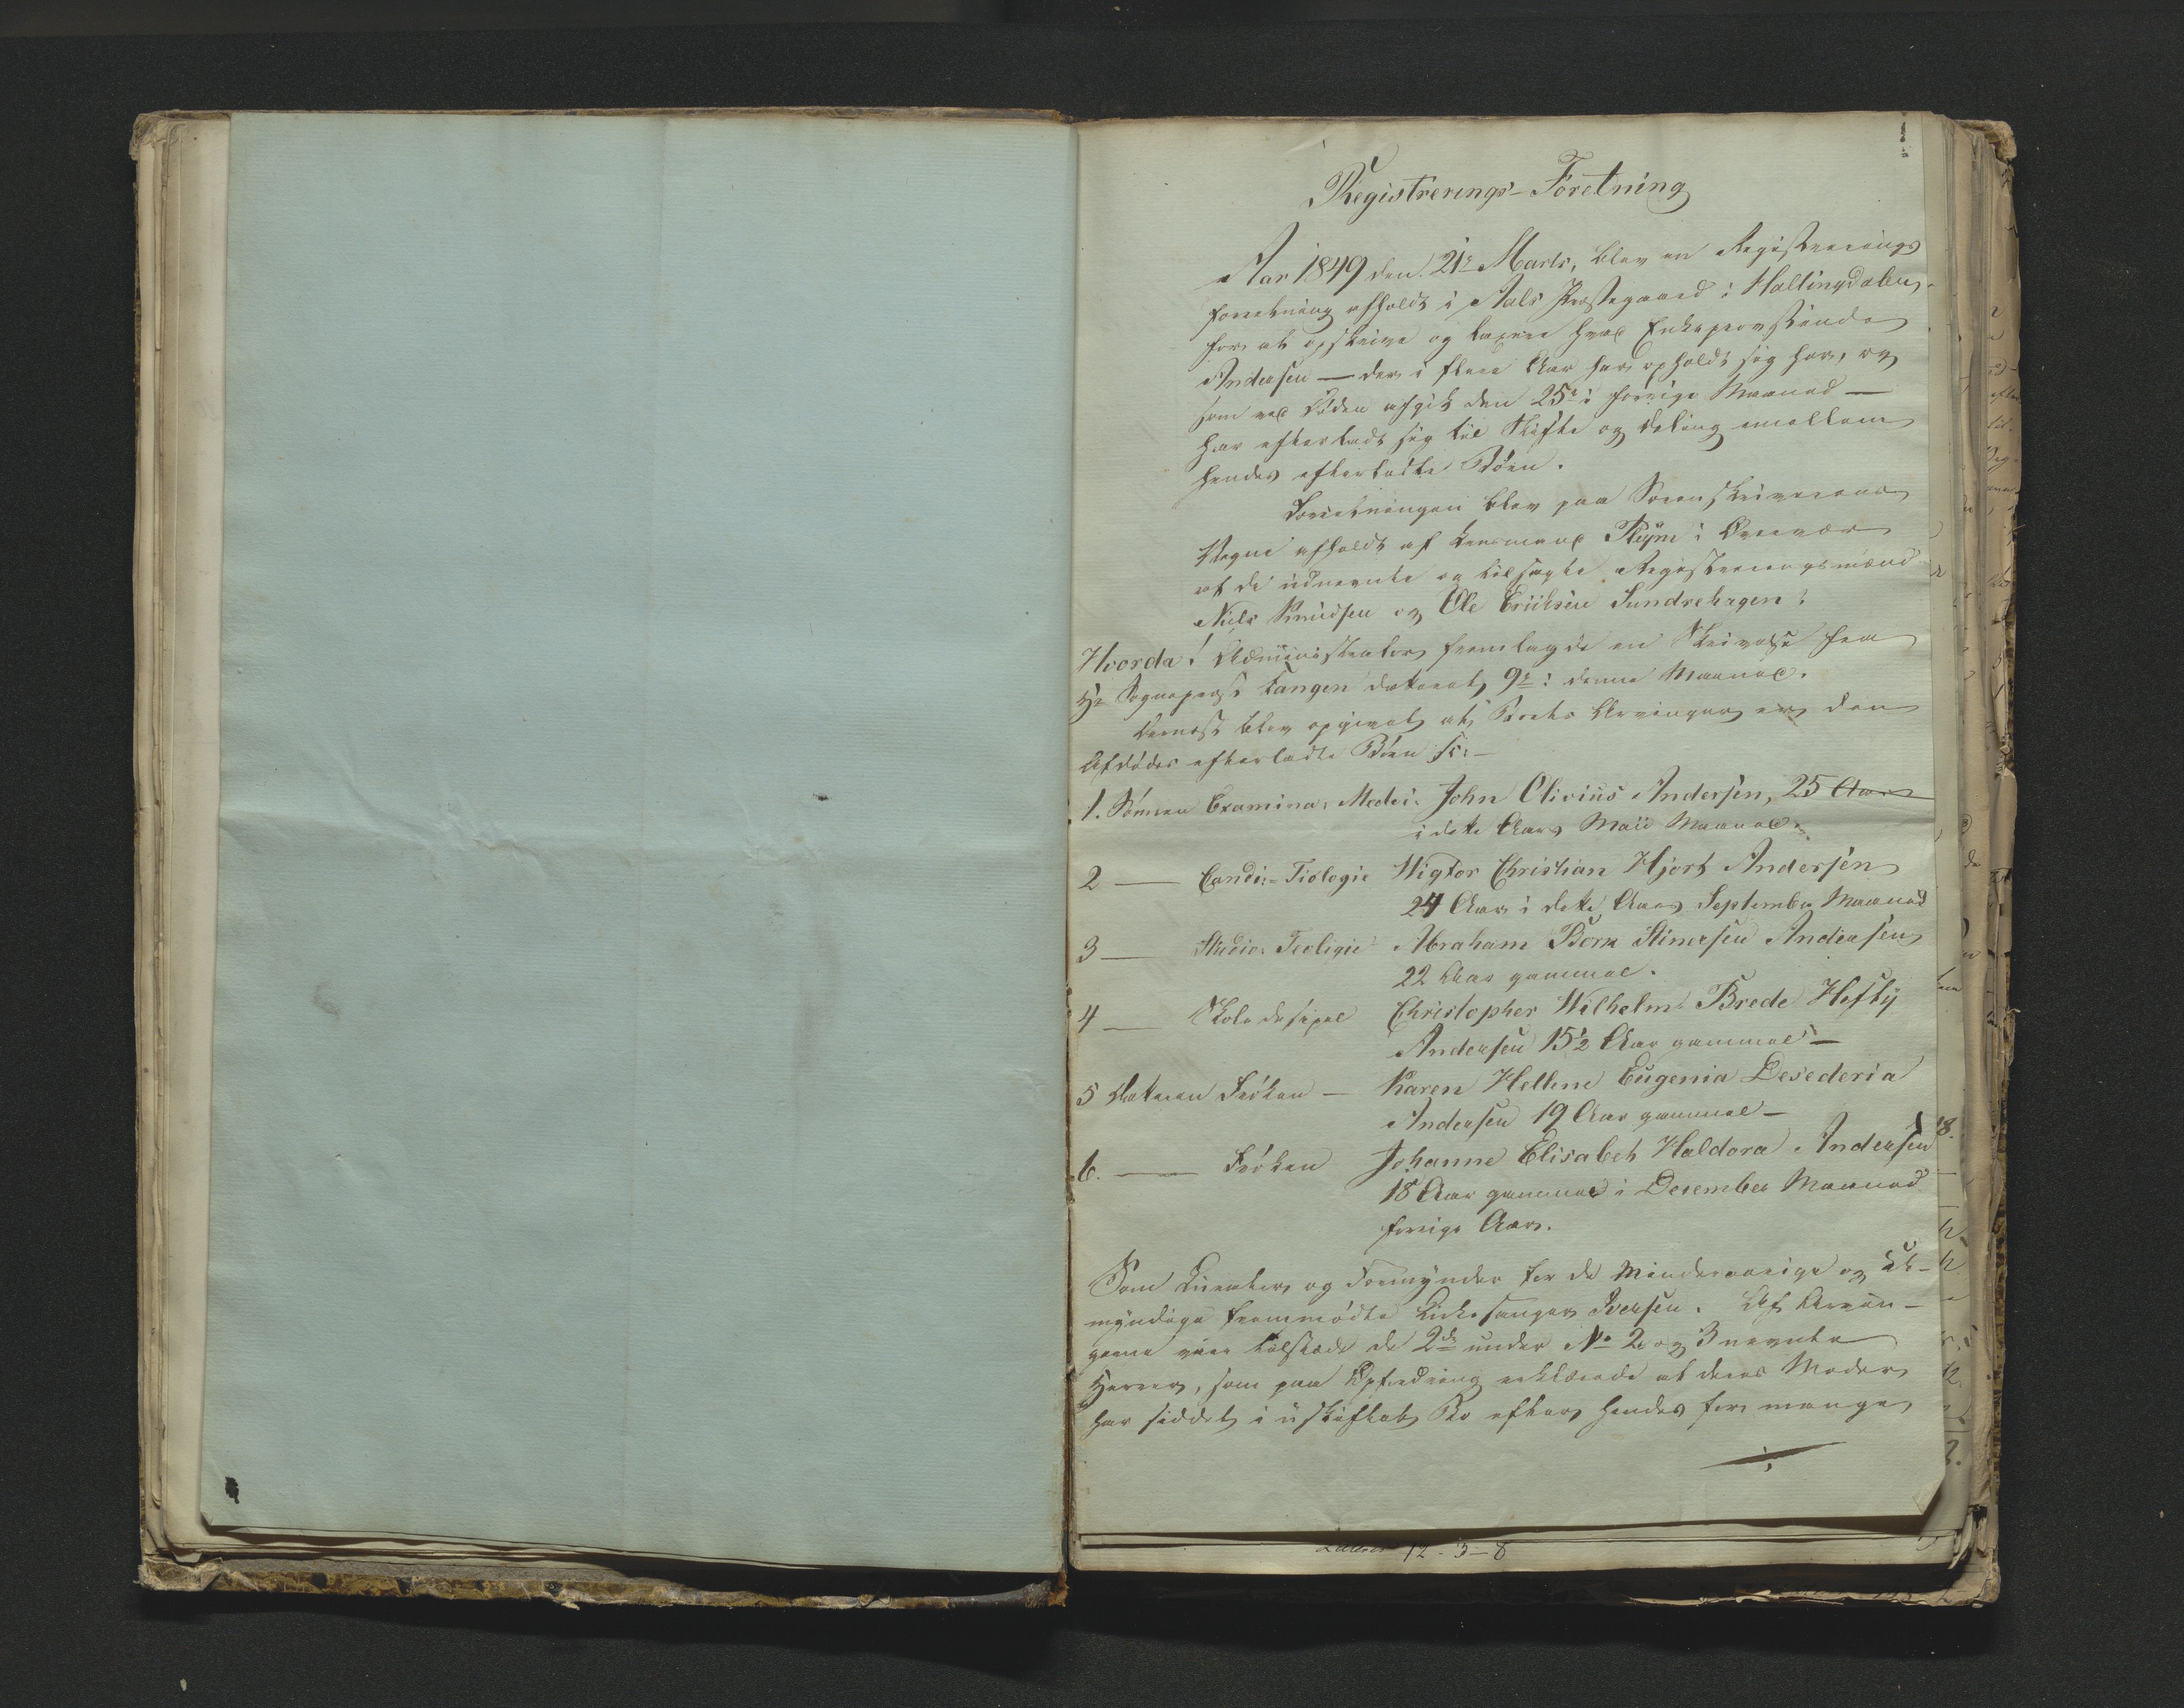 Registrerings-Foretning
Aar 1849 den 21de Marts, blev en Registrerings
foretning afholdt i Aals Præstegaard i Hallingdalen,
for at opskrive og taxere hvad Enkeprovstinde
Andersen — der i flere Aar har opholdt sig her, og
som ved Døden afgik den 25de i forrige Maaned —
har efterladt sig til Skifte og Deling emellem
hendes efterladte Børn.
Forretningen blev paa Sorenskriverens
Vegne afholdt af Lensmand Plÿm i Overvær
af de udnevnte og tilsagte Registreringsmænd
Niels Knudsen og Ole Eriksen Sundrehagen:
Hvorda! Administrator fremlagde en Skrivelse fra
Hr Sognepræst Tangen dateret 9de i denne Maaned.
Dernæst blev opgivet at Boets Arvinger er den
Afdødes efterladte Børn sc:-
1. Sønnen Examina. Medi. John Olivius Andersen, 25 Aar
i dette Aars Maii Maaned.
2 — Candi:-Tiologie Wigtor Christian Hjort Andersen
24 Aar i dette Aars September Maaned
3 — Studio. Teoligie Abraham Born Stinersen Andersen
22 Aar gammel.
4 — Skoledisipel Christopher Wilhelm Brede Hefty
Andersen 15½ Aar gammel —
5 Datteren Frøken — Karen Hellene Eugenia Desederia
Andersen 19 Aar gammel —
6. — Frøken Johanne Elisabeh Haldora Andersen
18 Aar gammel i Desember Maaned
forrige Aar.
Som Curator og Formynder for de Mindreaarige og U-
myndige fremmødte Kirkesanger Iversen. Af Arvin-
gerne vare tilstæde de 2de under No 2 og 3 nevnte
Herrer, som paa Opfordring erklærede at deres Moder
har siddet i uskiftet Bo efter hendes for mange
12-3-8